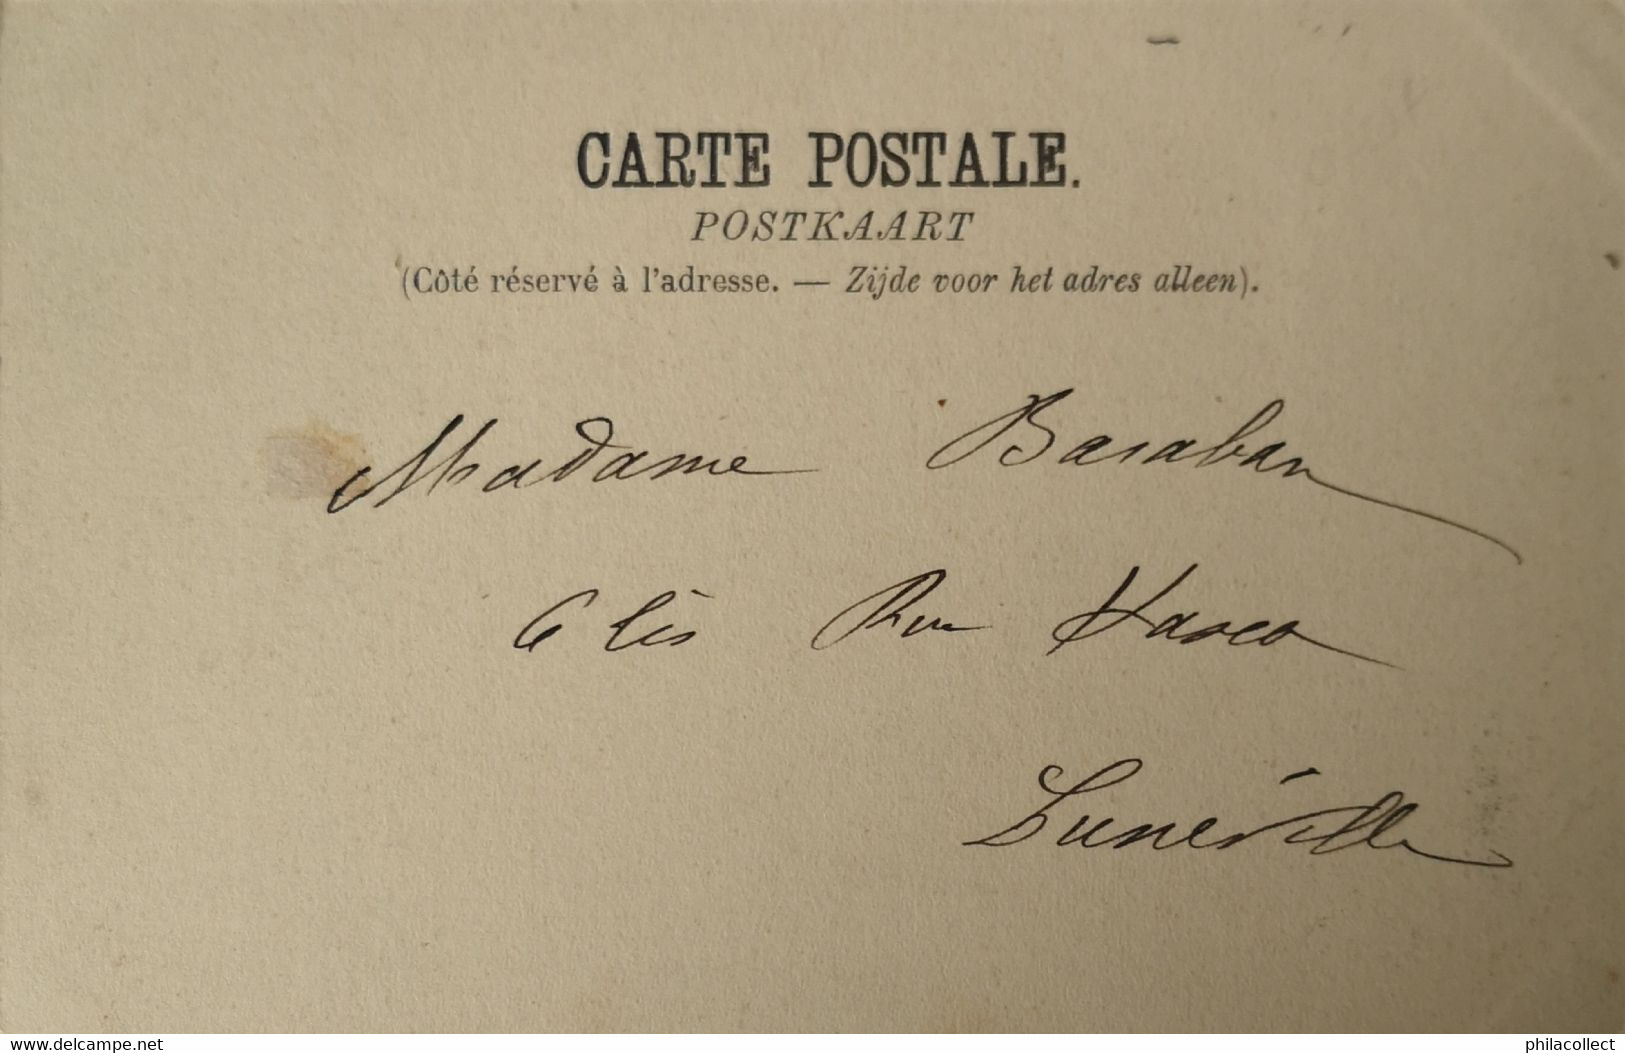 CARTE POSTALE.
POSTKAART
(Côté réservé à l'adresse. — Zijde voor het adres alleen).
Madame Baraban
6 bis Rue
Lunéville
delcampe.net philacollect